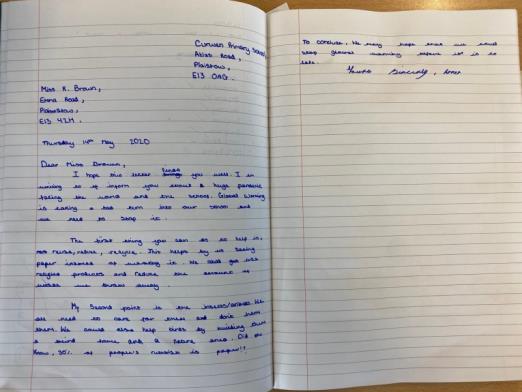 Curwen Primary School,
Atlas Road,
Plaistow,
E13 0AG.
Miss K. Brown,
Emma Road,
Plaistow,
E13
Thursday 14th May 2020
Dear Miss Brown,
I hope this letter finds you well. I am
writing to inform you about a huge pandemic
facing the world and the school. Global Warming
is taking a bad turn into our school and
we need to stop it.
The first thing you can do to help is,
reuse, reduce, recycle. This helps by us
paper instead of it. We could
products and reduce the amount of
we throw away.
My second point is the We
all need to care for them and don't
them. We could also help birds by building them
a bird home and a nature area. Did you
know, 30% of people's rubbish is paper!?
To conclude, We may hope that we could
stop global warming before it is to
late.
Yours Sincerely,